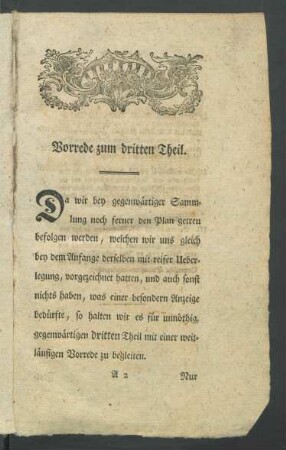 Vorrede zum dritten Theil.
Da wir bey gegenwärtiger Samm-
lung noch ferner den Plan getreu
befolgen werden, welchen wir uns gleich
bey dem Anfange derselben mit reifer Ueber-
legung, vorgezeichnet hatten, und auch sonst
nichts haben, was einer besondern Anzeige
bedürfte, so halten wir es für unnöthig,
gegenwärtigen dritten Theil mit einer weit-
läufigen Vorrede zu begleiten.
A 2 Nur